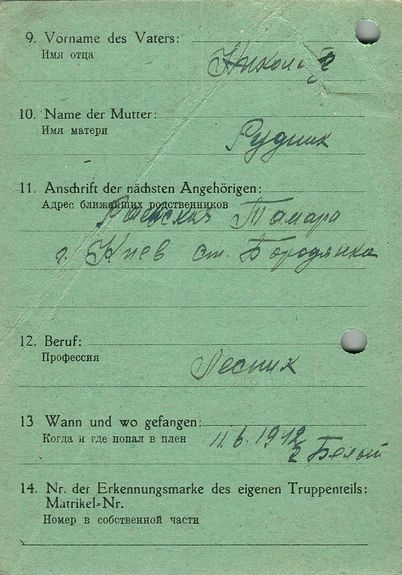 9. Vorname des Vaters:
Имя отца
Николай
10. Name der Mutter:
Имя матери
Рудник
11. Anschrift der nächsten Angehörigen:
Адрес ближайших родственников
Раевская Тамара
г. Киев ст. Бородянка
12. Beruf:
Профессия
Лесник
13 Wann und wo gefangen:
Когда и где попал в плен
11.6.1942
г Белый
14. Nr. der Erkennungsmarke des eigenen Truppenteils:
Matrikel-Nr.
Номер в собственной части